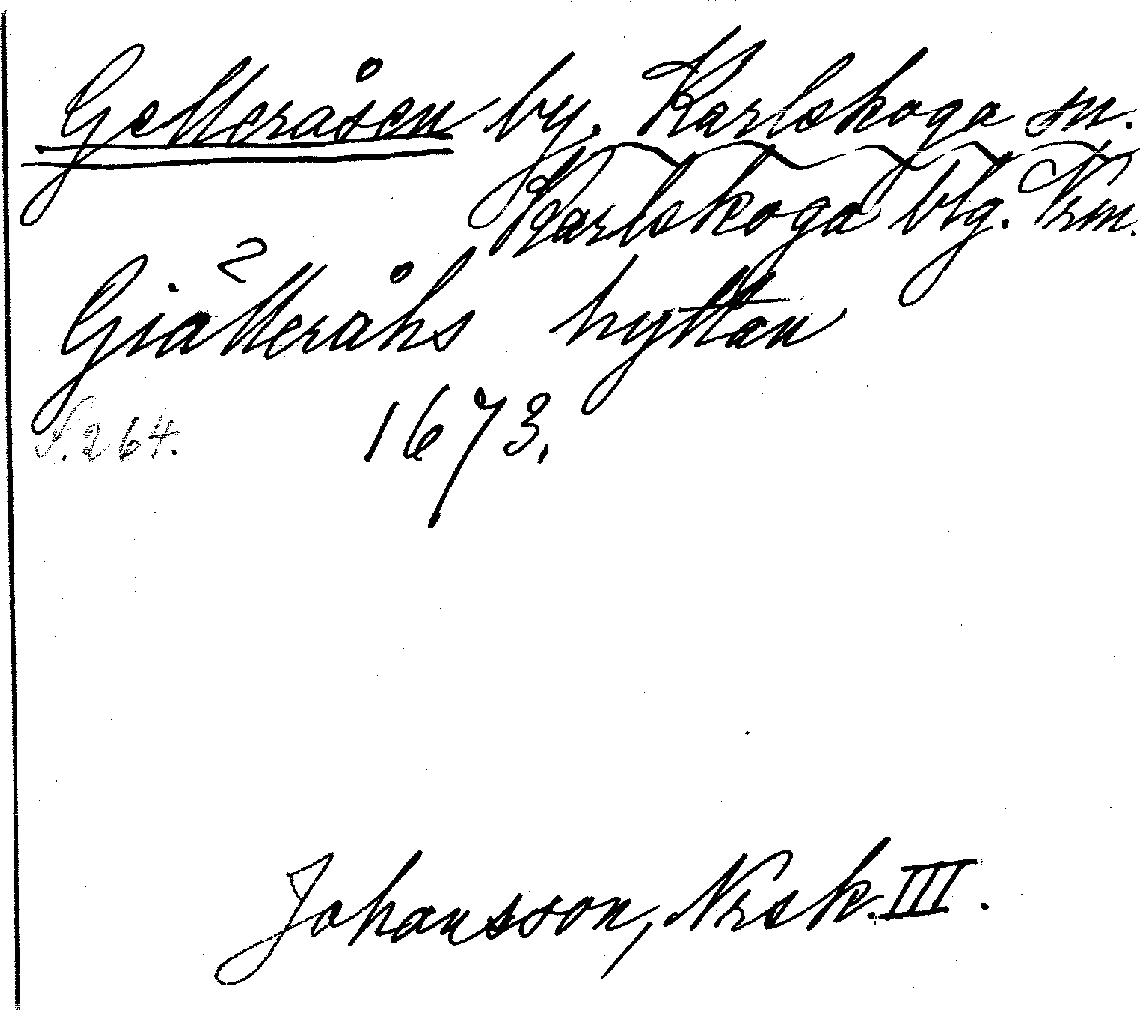 Gelleråsen by. Karlskoga sn.
Karlskoga blg. Vrm.
Giälleråhs hyttan
S.264. 1673.
Johansson, Nrsk.III.